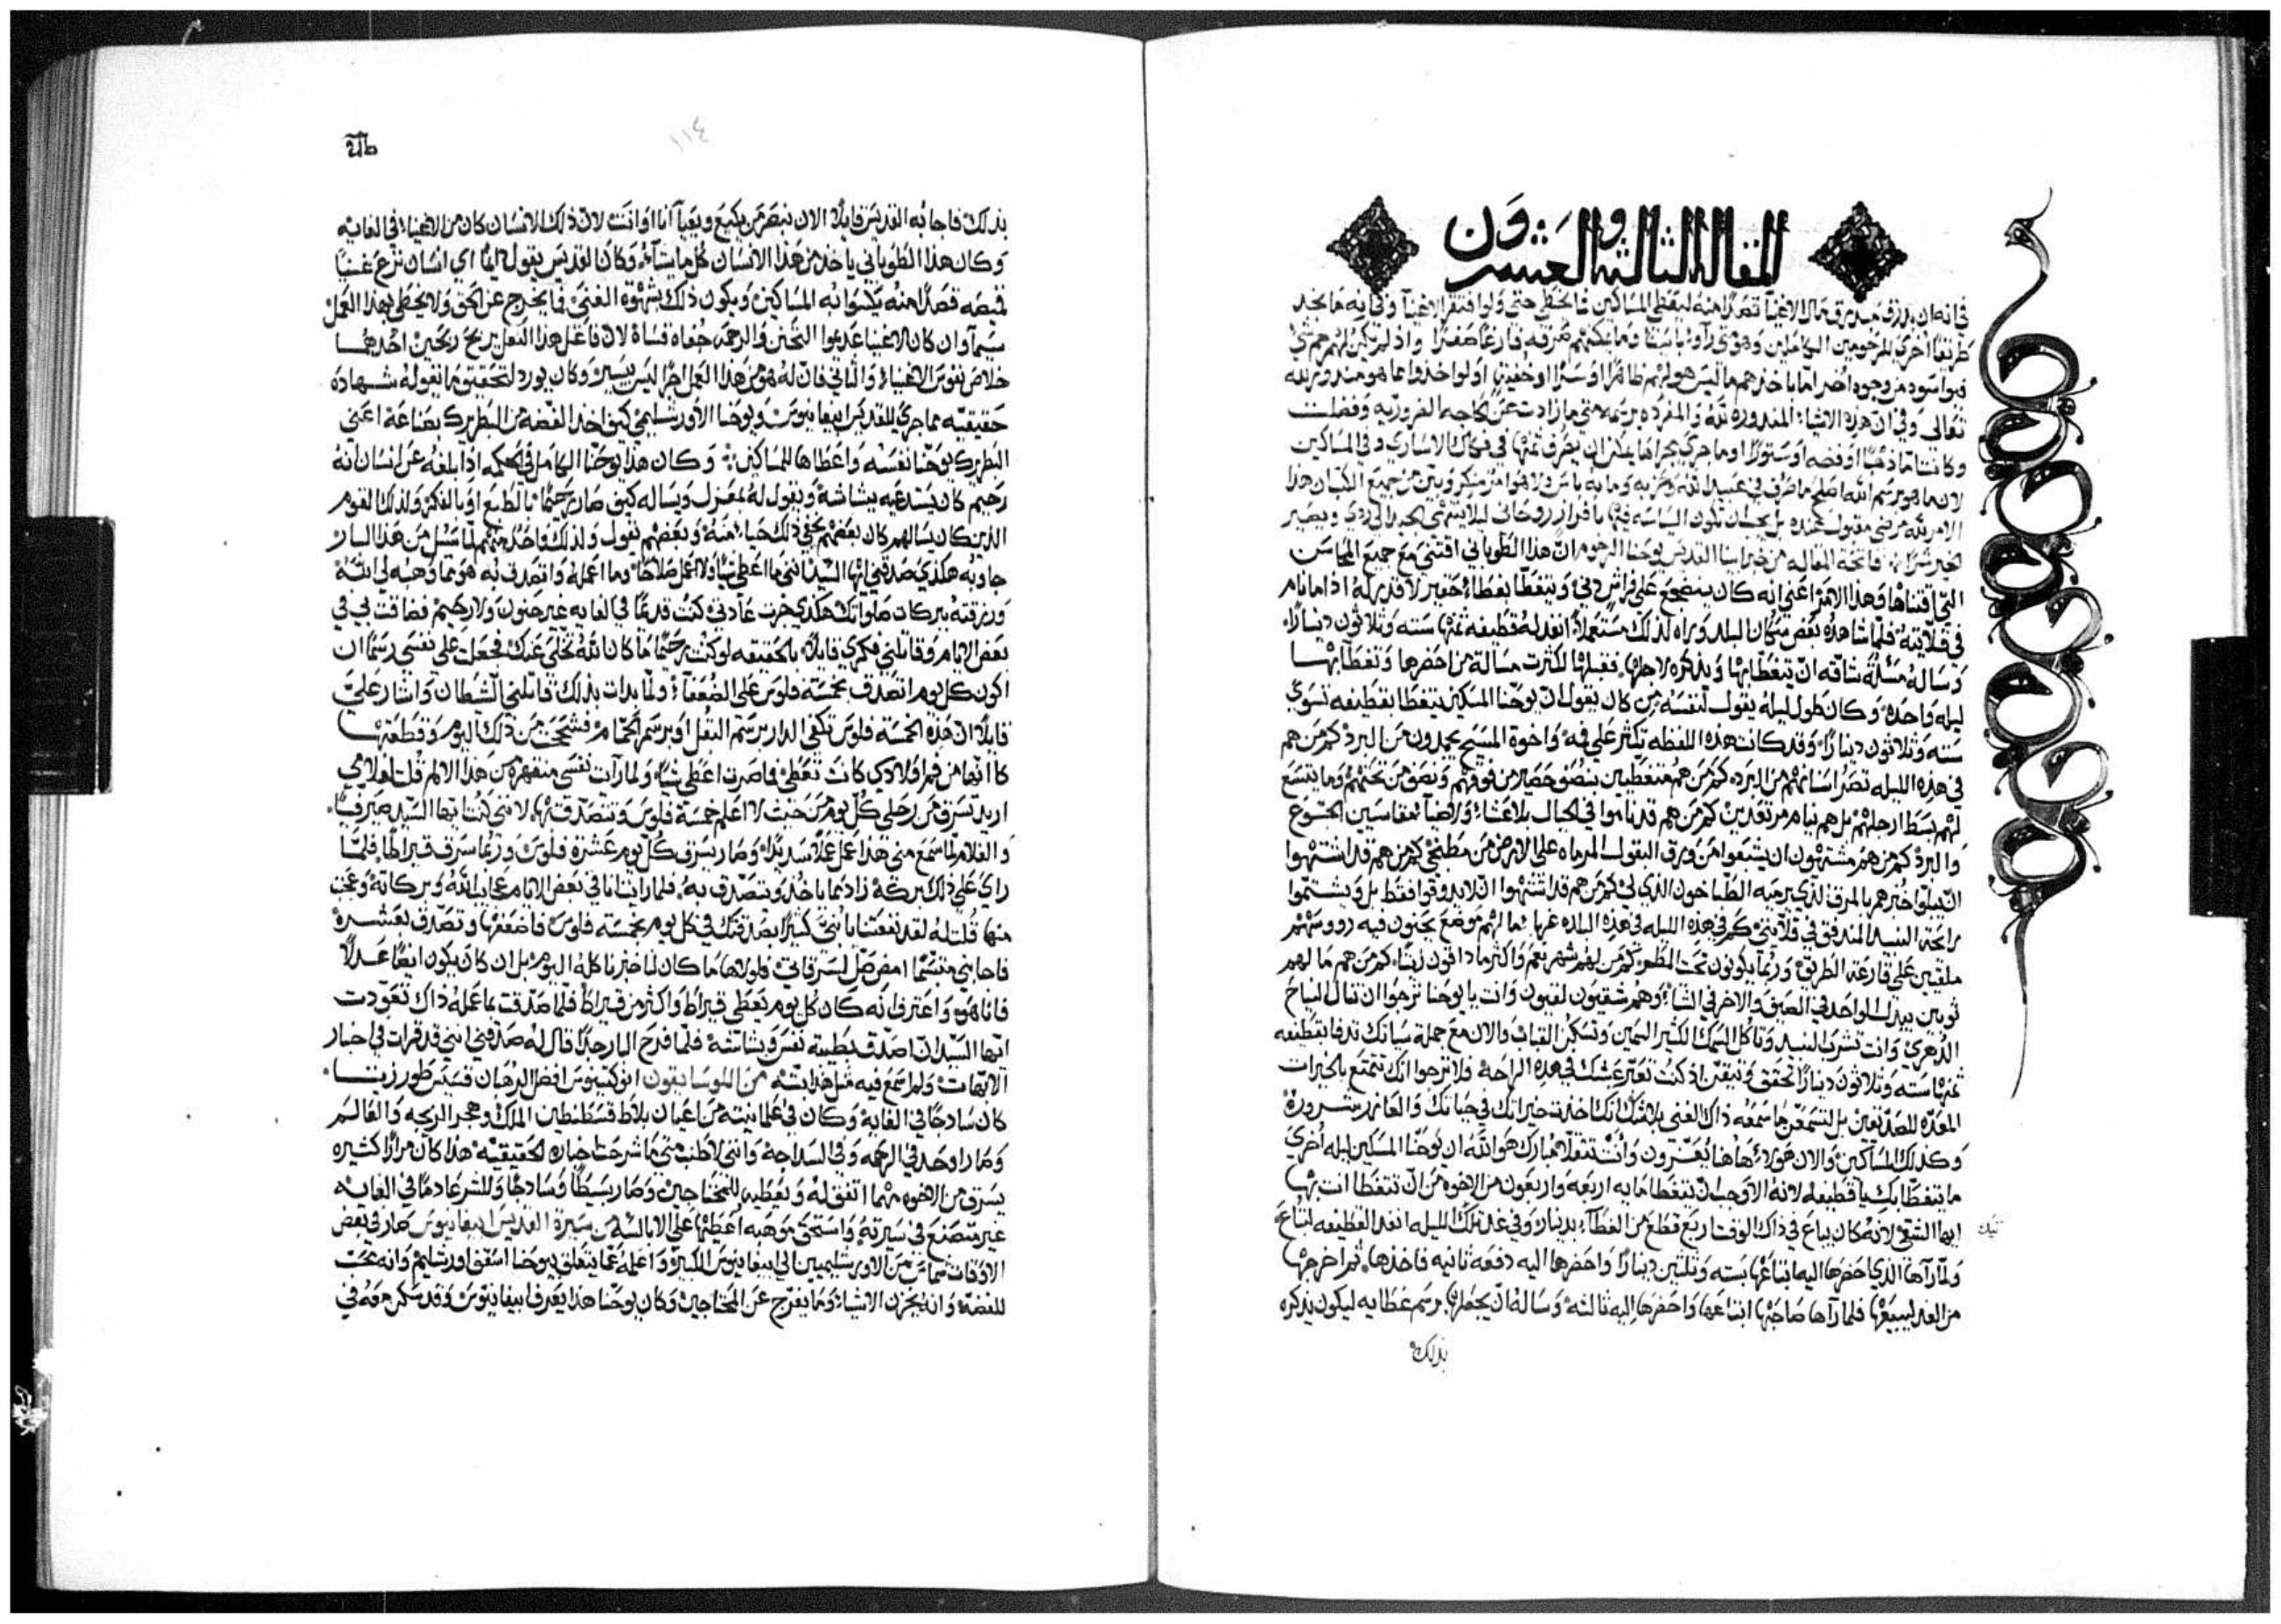 المقالة الثالثة والعشرون
في انه ان يسرق من مال الاغنيآ قصدًا منه ليعطي المساكين فما يخطي حتى ولو افتقر الاغنيآ وفي انه ما يجد
تعالى وفي ان هذه الاشيا المنذوره لله والمفرده برسمه متى ما زادت عن الحاجه الضروريه وفضلت
وكانت اما ذهبًا او فضه او ستورًا او ما جري مجراها يمكن ان يصرف ثمنها في فكاك الاساري وفي المساكين
الخير شرًا فاتحة المقاله من خبر ابينا القديس يوحنا الرحوم ان هذا الطوباني اقتني مع جميع المحاسن
التي اقتناها وهذا الامر اعني انه كان ينضجع علي فراش دني ويتغطا بغطاء حقير لا قدر له اذا ما نام
في قلايته فلما شاهده بعض سكان البلد وراه لذلك مستعملًا انفذ له قطيفه ثمنها سته وثلاثون دينارًا
وساله مسئلة شاقه ان يتغطا بها ويذكره لاجلها ففعلها لكثرت مسالة من احضرها وتغطا بها
ليله واحده وكان طول ليله يقول لنفسه من كان يقول ان يوحنا المسكين يتغطا بقطيفه تسوي
سته وثلاثون دينارًا وقد كانت هذه اللفظه تكثر علي فمه واخوة المسيح يجمدون من البرد كم من هم
في هذه الليله تصر اسنانهم من البرد كم من هم متغطيين بنصف حصير من فوقهم ونصف من تحتهم وما يتسع
لهم بسط ارجلهم بل هم نيام مرتعدين كم من هم قد ناموا في الجبال بلا عشاء وايضا مقاسيين الجوع
والبرد كم من هم مشتهون ان يشبعوا من ورق البقول المرماه على الارض من مطبخي كم من هم قد اشتهوا
ان يبلوا خبزهم بالمرق الذي يرميه الطباخون الذي لي كم من هم قد اشتهوا ان لا يذوقوا فقط بل ويشتموا
رائحة النبيد المندفق في قلايتي كم في هذه الليله في هذه البلاد غربا ما لهم موضع يحنون فيه رووسهم
ملقيين علي قارعة الطريق وربما يكونون تحت المطر كم من لهم شهر نعم واكثر ما ذاقون زيتًا كم من هم ما لهم
ثوبين يبدل الواحد في الصيف والاخر في الشتاء وهم شقيون لغبون وانت يا يوحنا ترجوا ان تنال النياح
الدهري وانت تشرب النبيد وتاكل السمك الكثير السمين وتسكن القباب والان مع جملة سياتك تدفا بقطيفه
ثمنها سته وثلاثون دينارًا تحقق وتيقن اذ كنت تعتز عيشك في هذه الراحة فلا ترجوا انك تتمتع بالخيرات
المعده للصديقين بل لتسمعن ما سمعه ذاك الغني بلا شك انك اخذت خيراتك في حياتك والعازر شروره
وكذلك المساكين والان هولاء هاهنا يعتزون وانت تتقلا مبارك هو الله ان يوحنا المسكين ليله أخري
ما يتغطا بك يا قطيفه لانه الاوجب ان تتغطا مايه اربعه واربعون من الاخوه من ان تتغطا انت بها
ايها الشقي لانه كان يباع في ذاك الوقت اربع قطع من الغطاء بدينار وفي غد تلك الليله انفذ القطيفه لتباع
ولما رآها الذي احضرها اليه ابتاعها بسته وثلثين دينارًا واحضرها اليه دفعه ثانيه فاخذها ثم اخرجها
من الغد ليبيعها فلما رآها صاحبها ابتاعها واحضرها اليه ثالثه وساله ان يجعلها برسم غطايه ليكون يذكره
بذلك
١١٤
بذلك فاجابه القديس قايلًا الان نبصر من يكيع ويعيآ انا او انت لان ذلك الانسان كان من الاغنياء في الغايه
وكان هذا الطوباني ياخذ من هذا الانسان كل ما يشآء وكان القديس يقول ايما اي انسان نزع غنيًا
قميصه قصدًا منه يكسوا به المساكين ويكون ذلك بشهوة الغني فما يخرج عن الحق ولا يخطي بهذا العمل
سيمآ وان كان الاغنيا عديموا التحنن والرحمه جفاه قساة لان فاعل هذا الفعل يربح ربحين احدهما
خلاص نفوس الاغنياء والثاني فان له هو من هذا العمل اجرًا ليس بيسير وكان يورد لتحقيق ما نقوله شهادة
حقيقيه مما جري للقديس ابيفانيوس ويوحنا الاورشليمي كيف اخذ الفضه من البطريرك بصناعة اعني
البطريرك يوحنا نفسه واعطاها للمساكين وكان هذا يوحنا الكامل في الحكمه اذا بلغه عن انسان انه
رحيم كان يستدعيه ببشاشة ويقول له بمعزل ويساله كيف صار رحيمًا بالطبع او بالفكر ولذلك القوم
الذين كان يسالهم كان بعضهم يخفي ذلك حياء منه وبعضهم يقول ولذلك واحد منهم لما سئل من هذا البار
جاوبه هكذي صدقني ايها السيد انني ما اعطي شيًا ولا اعمل صلاحًا وما اعمله واتصدق به هو مما وهبه لي الله
ورزقته ببركات صلواتك هكدي جرت عادتي كنت قديمًا في الغايه غير حنون ولا رحيم فضاقت بي في
بعض الايام وقاتلني فكري قايلًا بالحقيقه لو كنت رحيمًا ما كان الله تخلي عنك فجعلت علي نفسي رسمًا ان
اكون كل يوم اتصدق بخمسة فلوس علي الضعفاء ولما بدات بذلك قاتلني الشيطان واشار علي
قايلًا ان هذه الخمسة فلوس تكفي الدار برسم البقل او برسم الحمام فشححت من ذلك اليوم وقطعتها
كاانها من فم اولادي كانت تعطي فما صرت اعطي شيًا ولما رآت نفسي منقهره من هذا الالم قلت لغلامي
اريد تسرق من رحلي كل يوم من حيث لا اعلم خمسة فلوس وتتصدق بها لانني كنت ايها السيد صيرفيًا
والغلام لما سمع مني هذا عمل عملًا سديدًا وصار يسرق كل يوم عشرة فلوس وربما سرق قيراطًا فلما
راي علي ذلك بركة زاد بما ياخذ ويتصدق به فلما رايت انا في بعض الايام عجايب الله وبركاته وعجبت
منها قلت له لقد نفعتنا يا بني كثيرًا بصدقتك في كل يوم بخمسة فلوس فاضعفها وتصدق بعشرة
فاجابني متبسمًا امض صل لسرقاتي فلولاها ما كان لنا خبز ناكله اليوم بل ان كان يكون ايضًا عدلًا
فانا هو واعترف انه كان كل يوم يعطي قيراط واكثر من قيراط فلما صدقت بما عمله ذاك تعودت
ايها السيد ان اصدق بطيبة نفس وبشاشة فلما فرح البار جدًا قال له صدقني انني قد قرات في اخبار
كان سادجًا في الغايه وكان في علمانيته من اعيان بلاط قسطنطين الملك وهجر الزيجه والعالم
وصار اوحد في الرحمه وفي السداجة وانني لاظنب متى ما شرحت اخباره الحقيقيه هذا كان مرارًا كثيره
يسرق من الاخوه مهما اتفق له ويعطيه للمحتاجين وصار بسيطًا وسادجًا وللشر عادمًا في الغايه
غير متصنع في سيرته واستحق موهبه اعطيها علي الابالسة من سيرة القديس ابيفانيوس صار في بعض
الاوقات شماس من الاورشليميين الي ابيفانيوس الكبير واعلمه عما يتعلق بيوحنا اسقف اورشليم وانه محب
للفضه وانه يخزن الاشياء وما يفرج عن المحتاجين وكان يوحنا هذا يعرف ابيفانيوس وقد سكن معه في